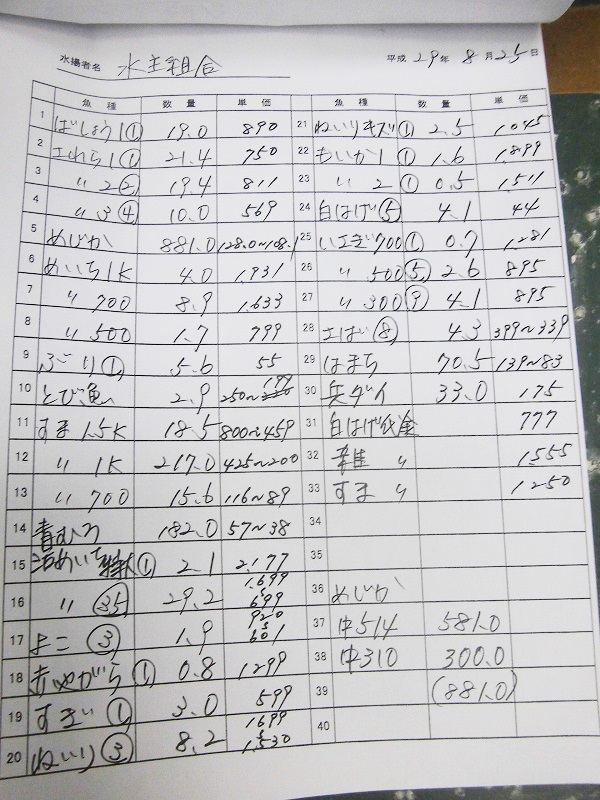 水揚者名 水主組合 平成 29年 8月25日
魚種 数量 単価
1 ばしょう1① 19.0 890
2 エれら1① 21.4 750
3 〃2② 19.4 811
4 〃3④ 10.0 569
5 めじか 881.0 128.0~108.1
6 めいち1K 4.0 1,931
7 〃700 8.9 1,633
8 〃500 1.7 799
9 ぶり① 5.6 55
10 とび魚 2.9 250~199
11 すま1.5K 18.5 800~459
12 〃1K 217.0 425~200
13 〃700 15.6 116~89
14 青むろ 182.0 57~38
15 活めいち特大① 2.1 2,177
16 〃㉟ 29.2 1,699~699
17 よこ③ 1.9 920~601
18 赤やがら① 0.8 1,299
19 すぎ① 3.0 599
20 ねいり③ 8.2 1,699~1,530
魚種 数量 単価
21 ねいりキズ① 2.5 1,045
22 もいか1① 1.6 1,899
23 〃2① 0.5 1,511
24 白はげ⑤ 4.1 44
25 いエぎ700① 0.7 1,281
26 〃500⑤ 2.6 895
27 〃300⑨ 4.1 895
28 エば⑧ 4.3 399~339
29 はまち 70.5 139~83
30 兵ダイ 33.0 175
31 白はげ代金 777
32 雑〃 1,555
33 すま〃 1,250
34
35
36 めじか
37 中514 581.0
38 中310 300.0
39 (881.0)
40